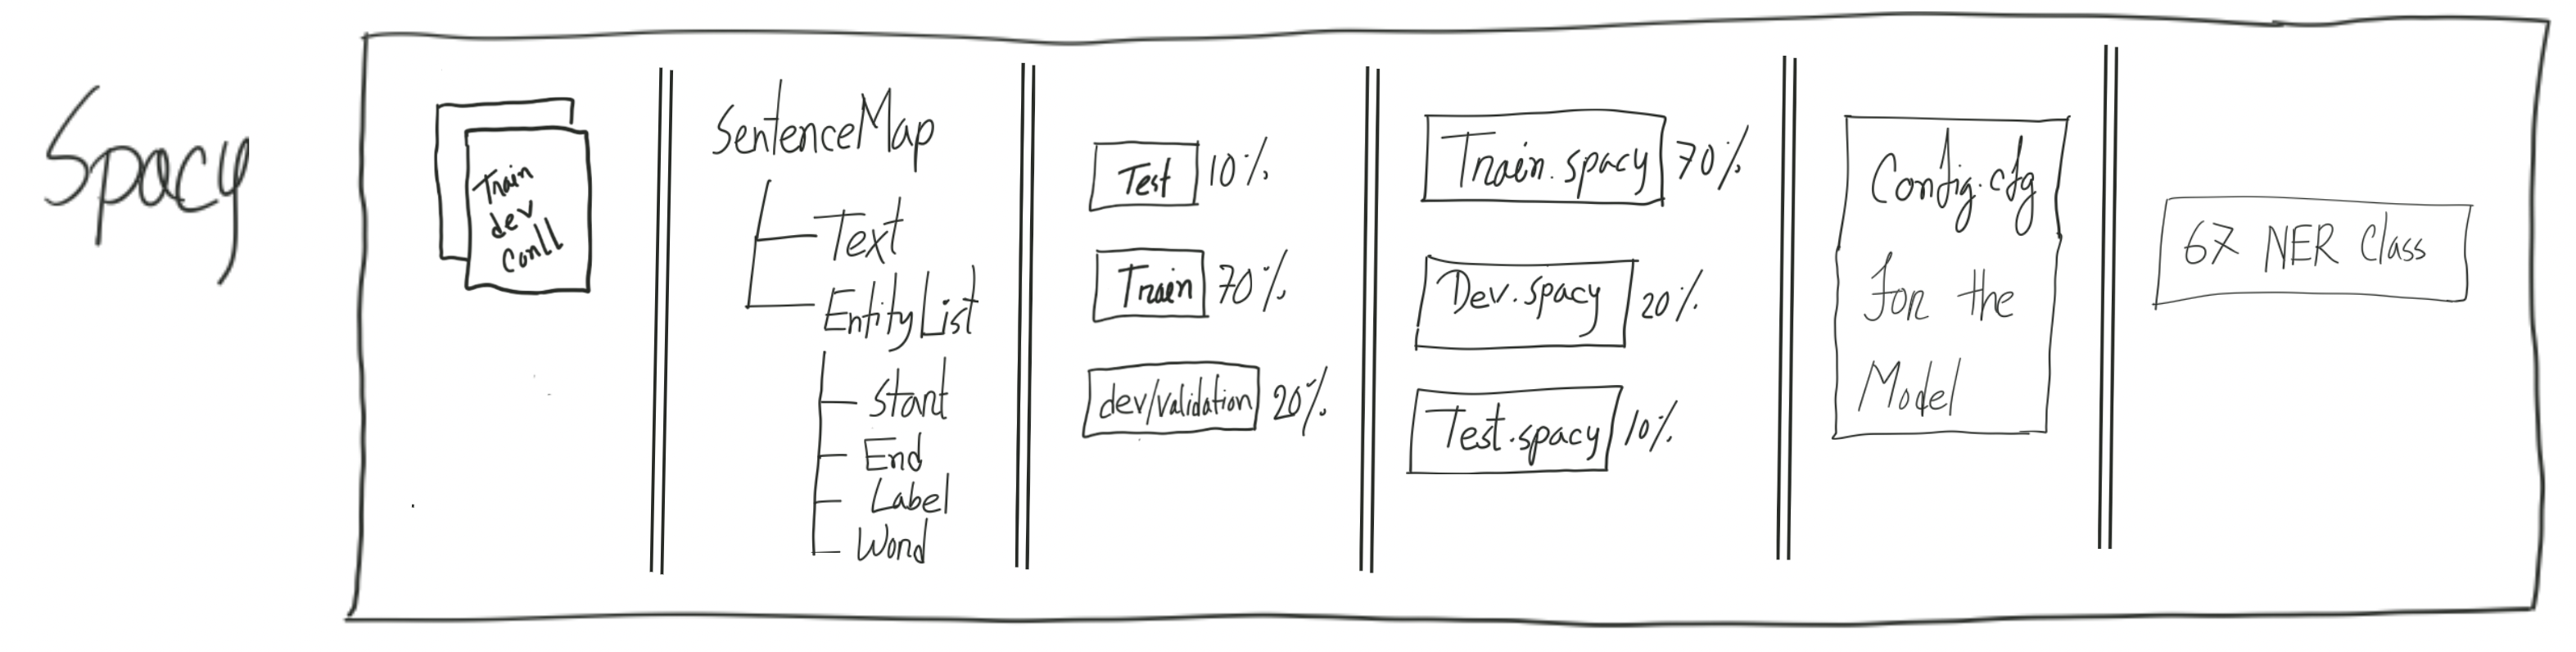 Spacy
Train
dev
Conll
SentenceMap
Text
EntityList
Start
End
Label
Word
Test 10%
Train 70%
dev/validation 20%
Train.spacy 70%
Dev.spacy 20%
Test.spacy 10%
Config.cfg
for the
Model
67 NER Class